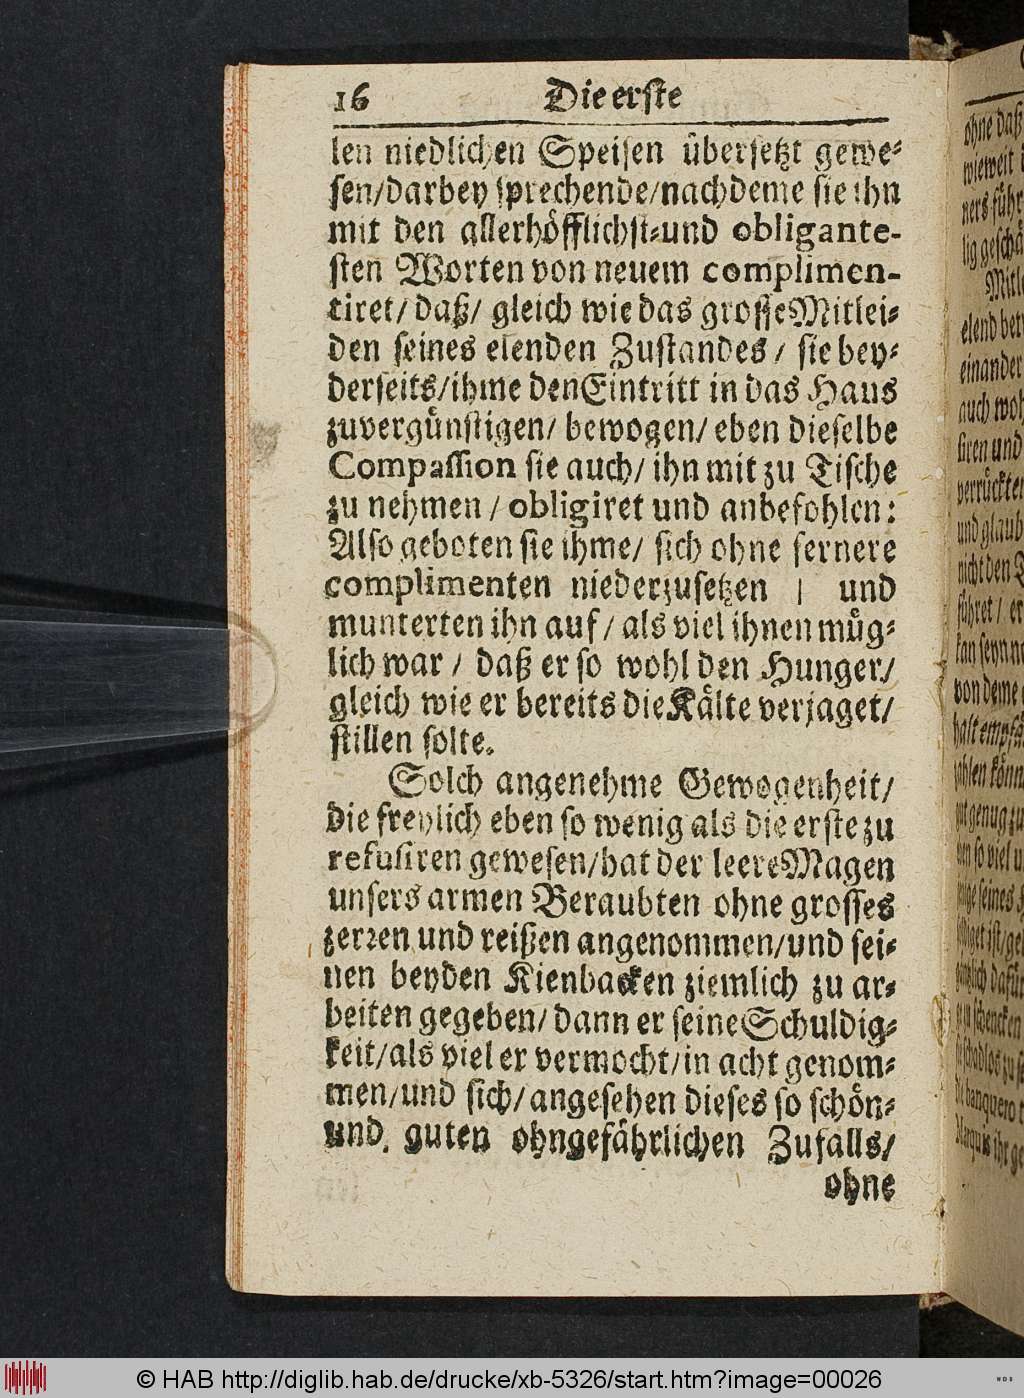 16 Die erste
len niedlichen Speisen übersetzt gewe-
sen/darbey sprechende/nachdeme sie ihn
mit den allerhöfflichst-und obligante-
sten Worten von neuem complimen-
tiret/ daß/ gleich wie das grosse Mitlei-
den seines elenden Zustandes / sie bey-
derseits/ihme den Eintritt in das Haus
zuvergünstigen/ bewogen/ eben dieselbe
Compassion sie auch/ ihn mit zu Tische
zu nehmen / obligiret und anbefohlen:
Also geboten sie ihme/ sich ohne fernere
complimenten niederzusetzen / und
munterten ihn auf / als viel ihnen müg-
lich war / daß er so wohl den Hunger/
gleich wie er bereits die Kälte verjaget/
stillen solte.
Solch angenehme Gewogenheit/
die freylich eben so wenig als die erste zu
refusiren gewesen/hat der leere Magen
unsers armen Beraubten ohne grosses
zerren und reißen angenommen/und sei-
nen beyden Kienbacken ziemlich zu ar-
beiten gegeben/ dann er seine Schuldig-
keit/als viel er vermocht/in acht genom-
men/und sich/ angesehen dieses so schön-
und guten ohngefährlichen Zufalls/
ohne
ohne daß
wieweit
ners führ
lig geschä
Mitl
elend bet
einander
auch woh
siren und
verrückte
und glaub
nicht den
führet / er
kan seyn
von deme
halt empfä
zahlen könn
genug zu
so viel
seines
ist/ge
dafür
schencken
schadlos zu
banquero
Marquis ihr ge
© HAB http://diglib.hab.de/drucke/xb-5326/start.htm?image=00026